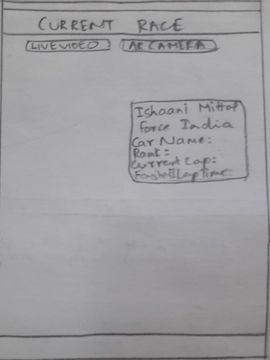 CURRENT RACE
LIVE VIDEO AR CAMERA
Ishaani Mittal
Force India
Car Name:
Rank:
Current Lap:
Fastest Lap Time: